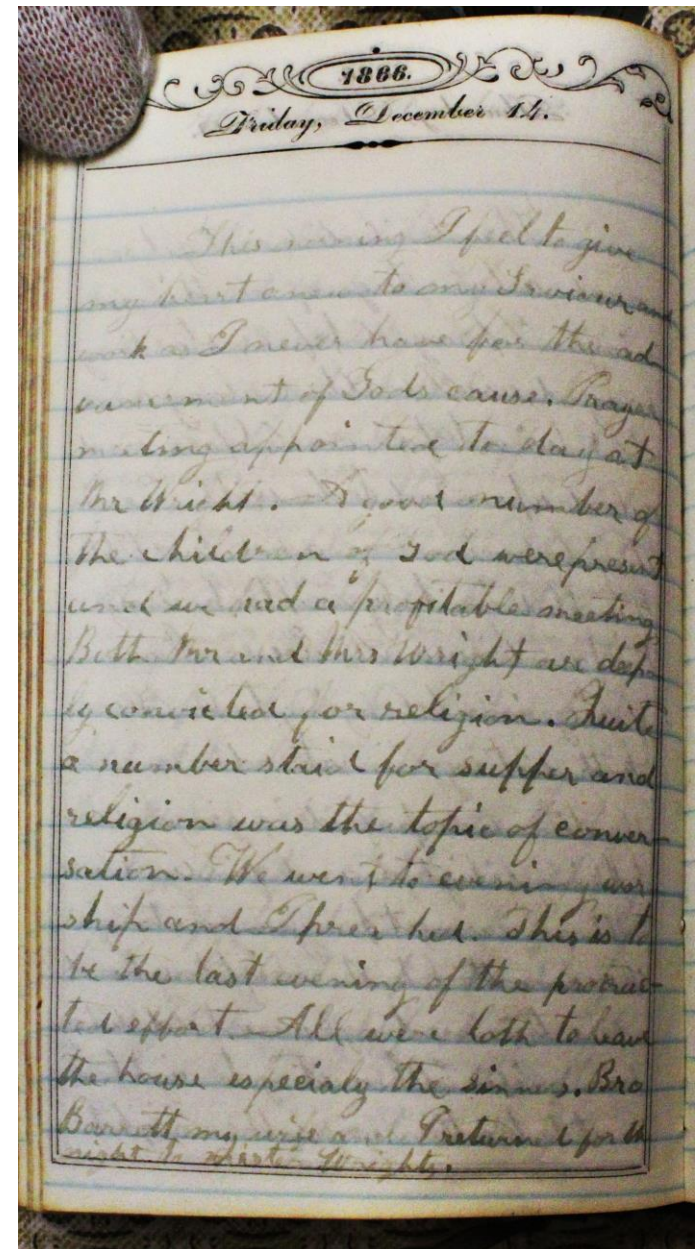 1866.
Friday, December 14.
This morning I feel to give
my heart anew to my Saviour and
work as I never have for the ad
vancement of Gods cause. Prayer
meeting appointed to day at
Mr Wright. A good number of
the children of God were present
and we had a profitable meeting
Both Mr and Mrs Wright are deep
ly convicted for religion. Quite
a number staid for supper and
religion was the topic of conver-
sation. We went to evening wor
ship and I preached. This is to
be the last evening of the protrac-
ted effort. All were loth to leave
the house especialy the sinners. Bro
Barrott my wife and I returned for the
night to Wrights.